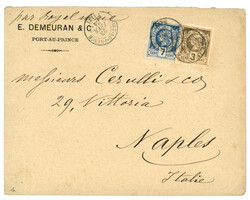 par Royal
E. DEMEURAN & C
PORT-AU-PRINCE
7
3
messieurs Cerulli & Co
29, Vittoria
Naples
Italie